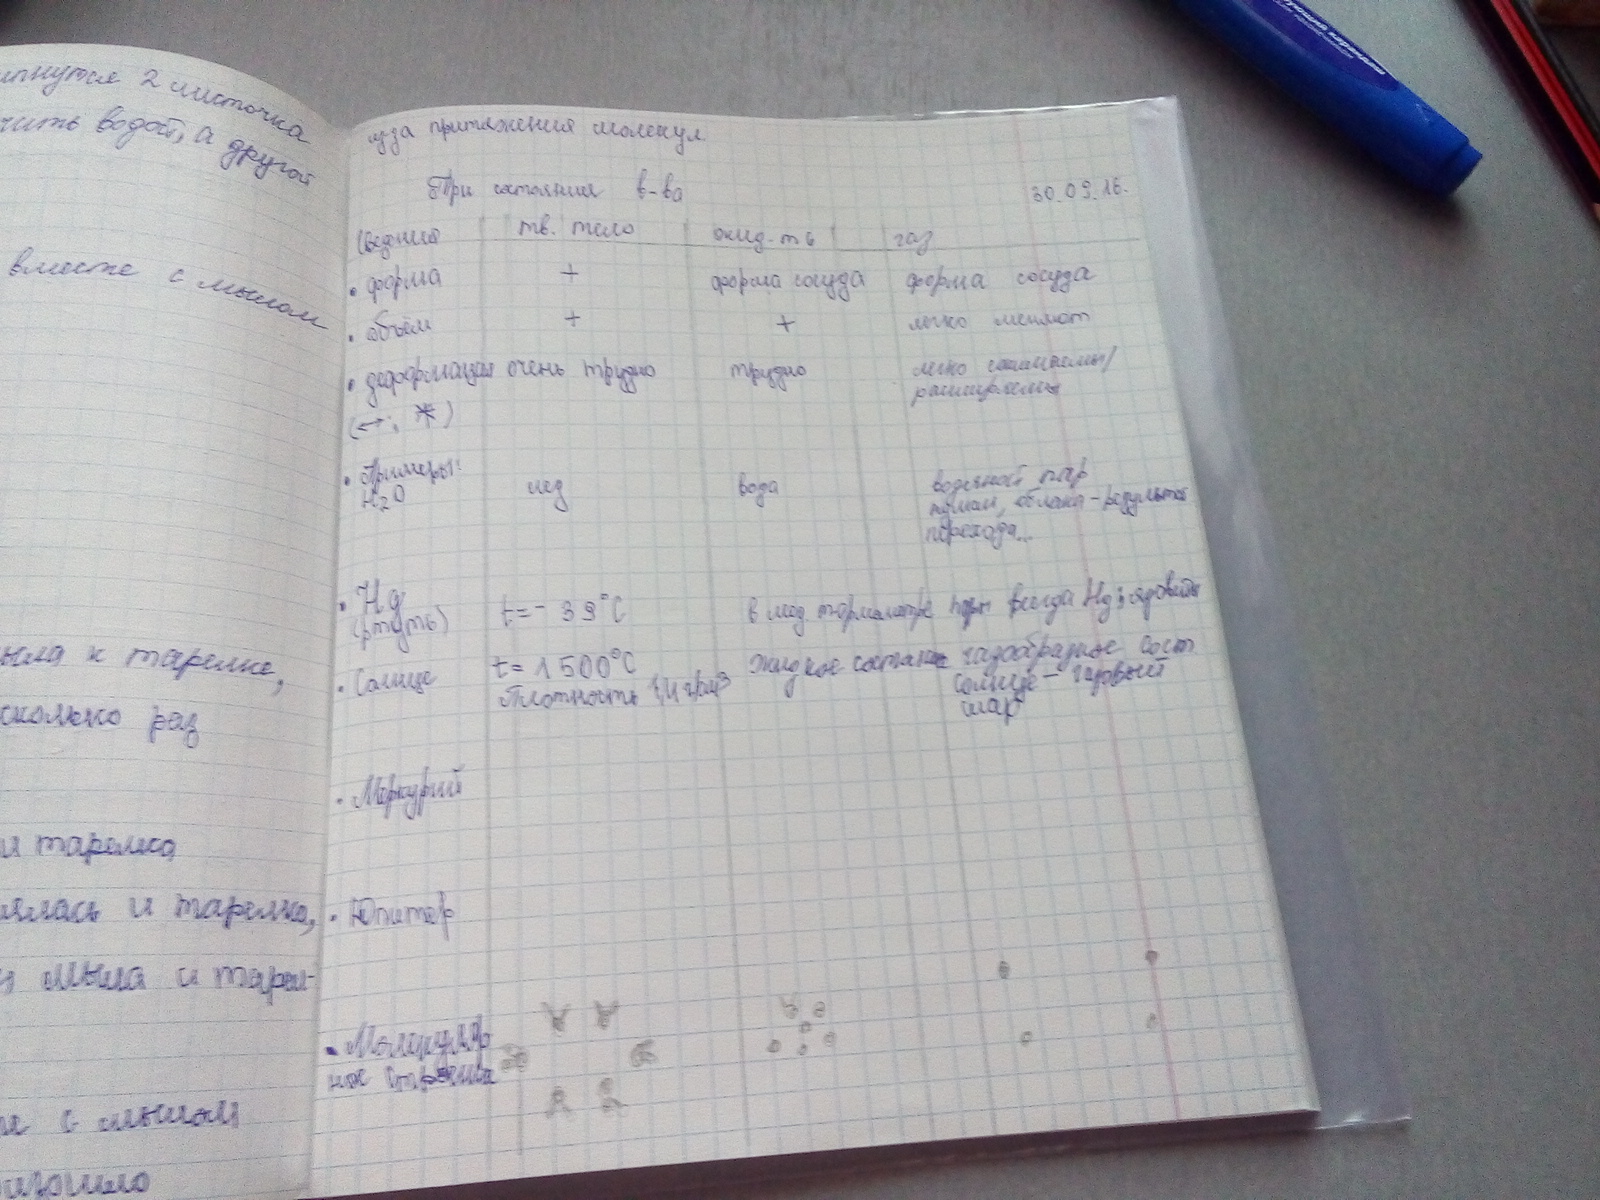 2 листочка
чить водой, а другой
вместе с мылом
ыла к тарелке,
сколько раз
и тарелка
ялась и тарелка,
и мыла и тарел-
с мылом
из за притяжения молекул.
Три состояния в-ва 30.09.16.
Сведения тв. тело жид-ть газ
• форма + форма сосуда форма сосуда
• объём + + легко меняют
• деформация очень трудно трудно легко сжимаемы/
расширяемы
Примеры:
H2O лед вода водяной пар
туман, облака - результат
перехода...
• Hg
(ртуть) t = - 39°C в мед. термометре пары всегда Hg ядовиты
• Солнце t = 1500°C жидкое состояние газообразное сост
Плотность 1,4 г/см3 солнце - газовый
шар
• Меркурий
• Юпитер
• Молекуляр
ное строение